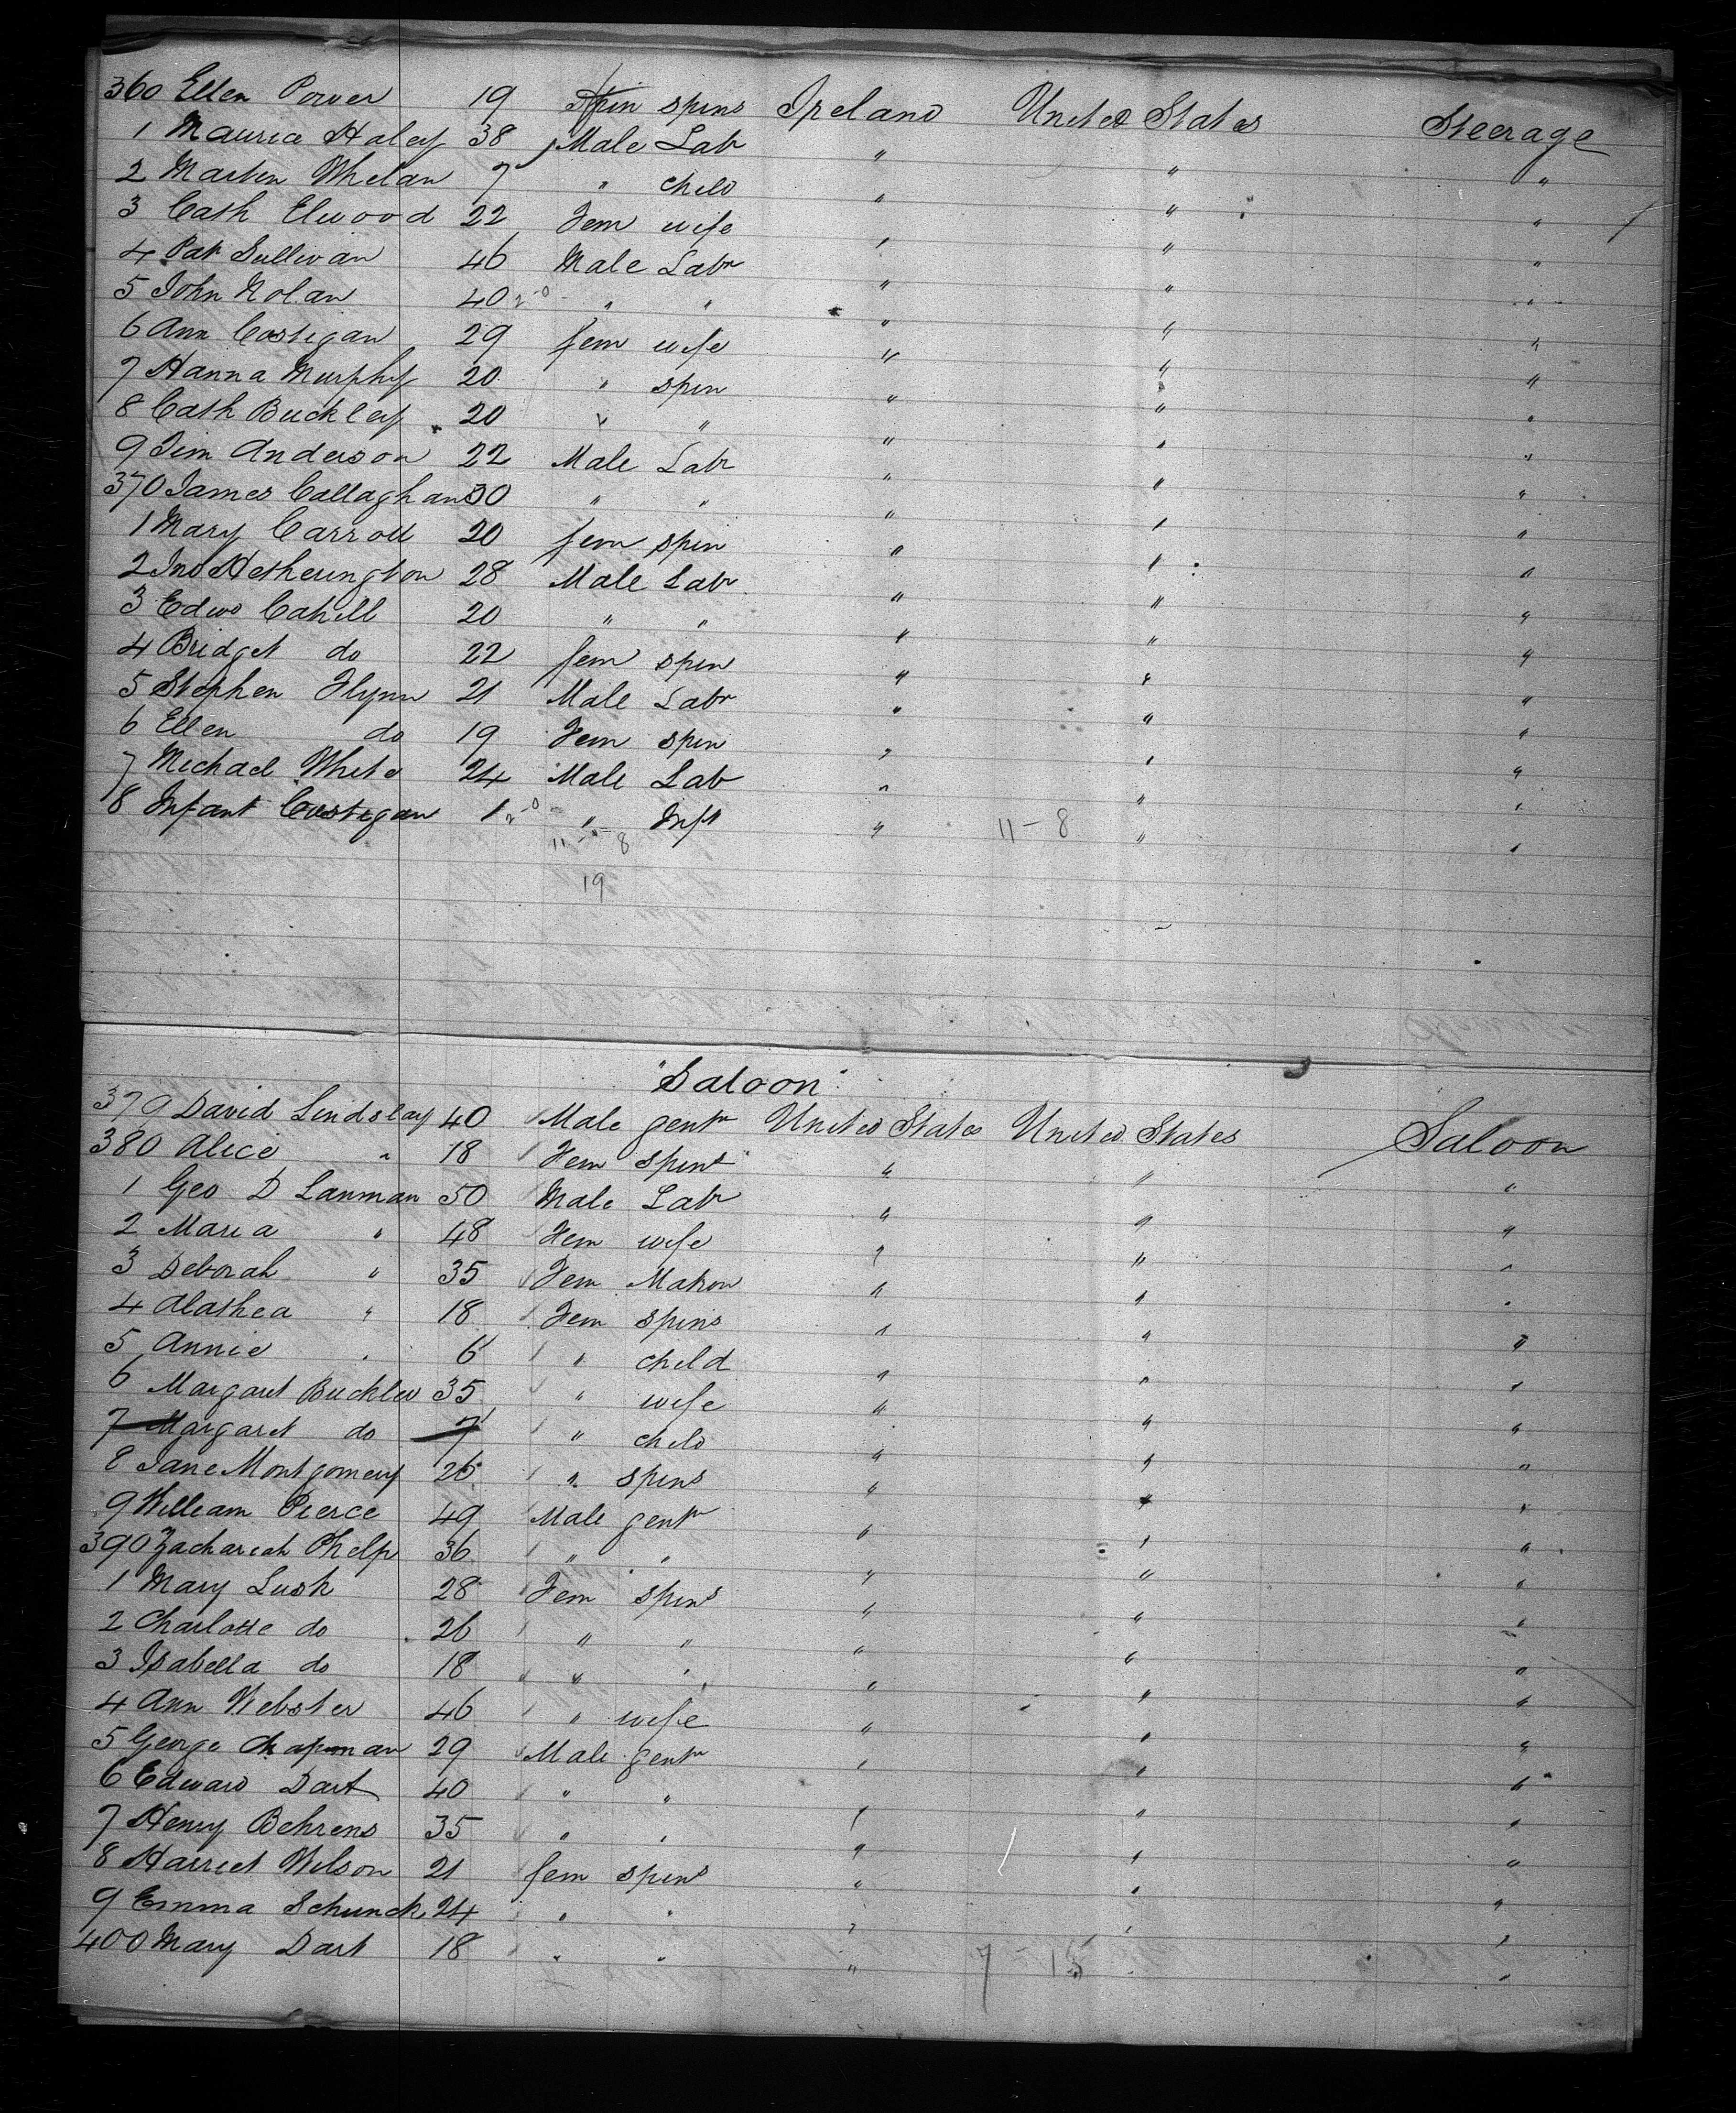 360 Ellen Power 19 spins Ireland United States Steerage
1 Maurice Haley 38 Male Labr " " "
2 Marten Whelan 7 " child " " "
3 Cath Elwood 22 Fem wife " " "
4 Pat Sullivan 46 Male Labr " " "
5 John Nolan 40 " " " " "
6 Ann Costigan 29 fem wife " " "
7 Hanna Murphy 20 " spin " " "
8 Cath Buckley 20 " " " " "
9 Jim Anderson 22 Male Labr " " "
370 James Callaghan 30 " " " " "
1 Mary Carroll 20 fem spin " " "
2 Jno Hetherington 28 Male Labr " " "
3 Edwd Cahill 20 " " " " "
4 Bridget do 22 fem spin " " "
5 Stephen Flynn 21 Male Labr " " "
6 Ellen do 19 Fem spin " " "
7 Michael White 24 Male Lab " " "
8 Infant Costigan 1 " Inft " 11-8 " "
11-8
19
"Saloon"
379 David Lindslay 40 Male gentn United States United States Saloon
380 Alice " 18 Fem spint " " "
1 Geo D Lanman 50 Male Labr " " "
2 Maria " 48 Fem wife " " "
3 Deborah " 35 Fem Matron " " "
4 Alathea " 18 Fem spins " " "
5 Annie " 6 " child " " "
6 Margaret Buckler 35 " wife " " "
7 Margaret do 7 " child " " "
8 Jane Montgomery 26 " spins " " "
9 William Pierce 49 Male gentn " " "
390 Zachariah Phelp 36 " " " " "
1 Mary Lusk 28 Fem spins " " "
2 Charlotte do 26 " " " " "
3 Isabella do 18 " " " " "
4 Ann Webster 46 " wife " " "
5 George Chapman 29 Male gentn " " "
6 Edward Dart 40 " " " " "
7 Henry Behrens 35 " " " " "
8 Harriet Wilson 21 fem spins " " "
9 Emma Schunck 24 " " " " "
400 Mary Dart 18 " " " 7-15 " "